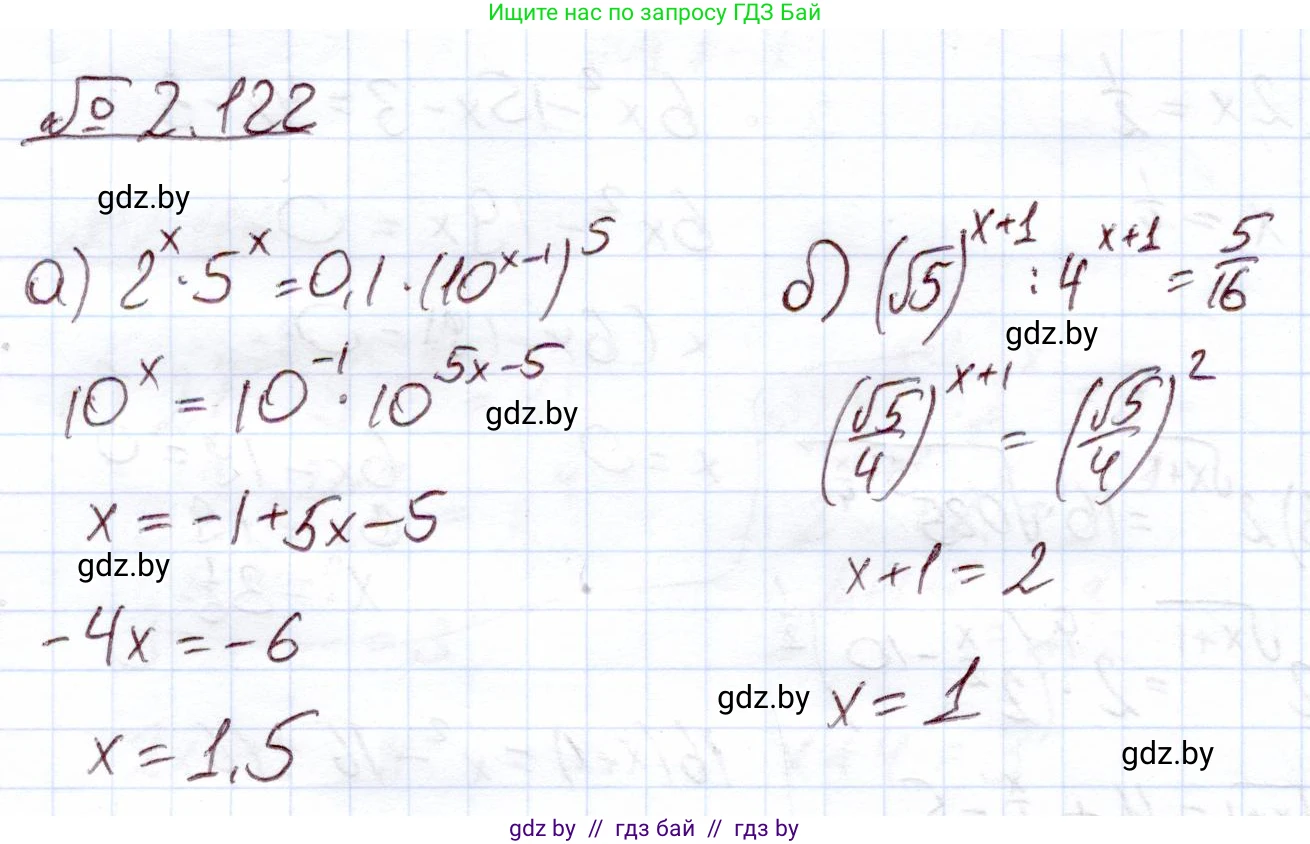 Ищите нас по запросу ГДЗ Бай
№ 2.122
gdz.by
а) 2^x · 5^x = 0,1 · (10^{x-1})^5
10^x = 10^{-1} · 10^{5x-5}
gdz.by
x = -1+5x-5
gdz.by
-4x = -6
x = 1,5
б) (√5)^{x+1} : 4^{x+1} = 5/16
gdz.by
(√5/4)^{x+1} = (√5/4)^2
x+1 = 2
gdz.by
x = 1
gdz.by
gdz.by // гдз бай // гдз by